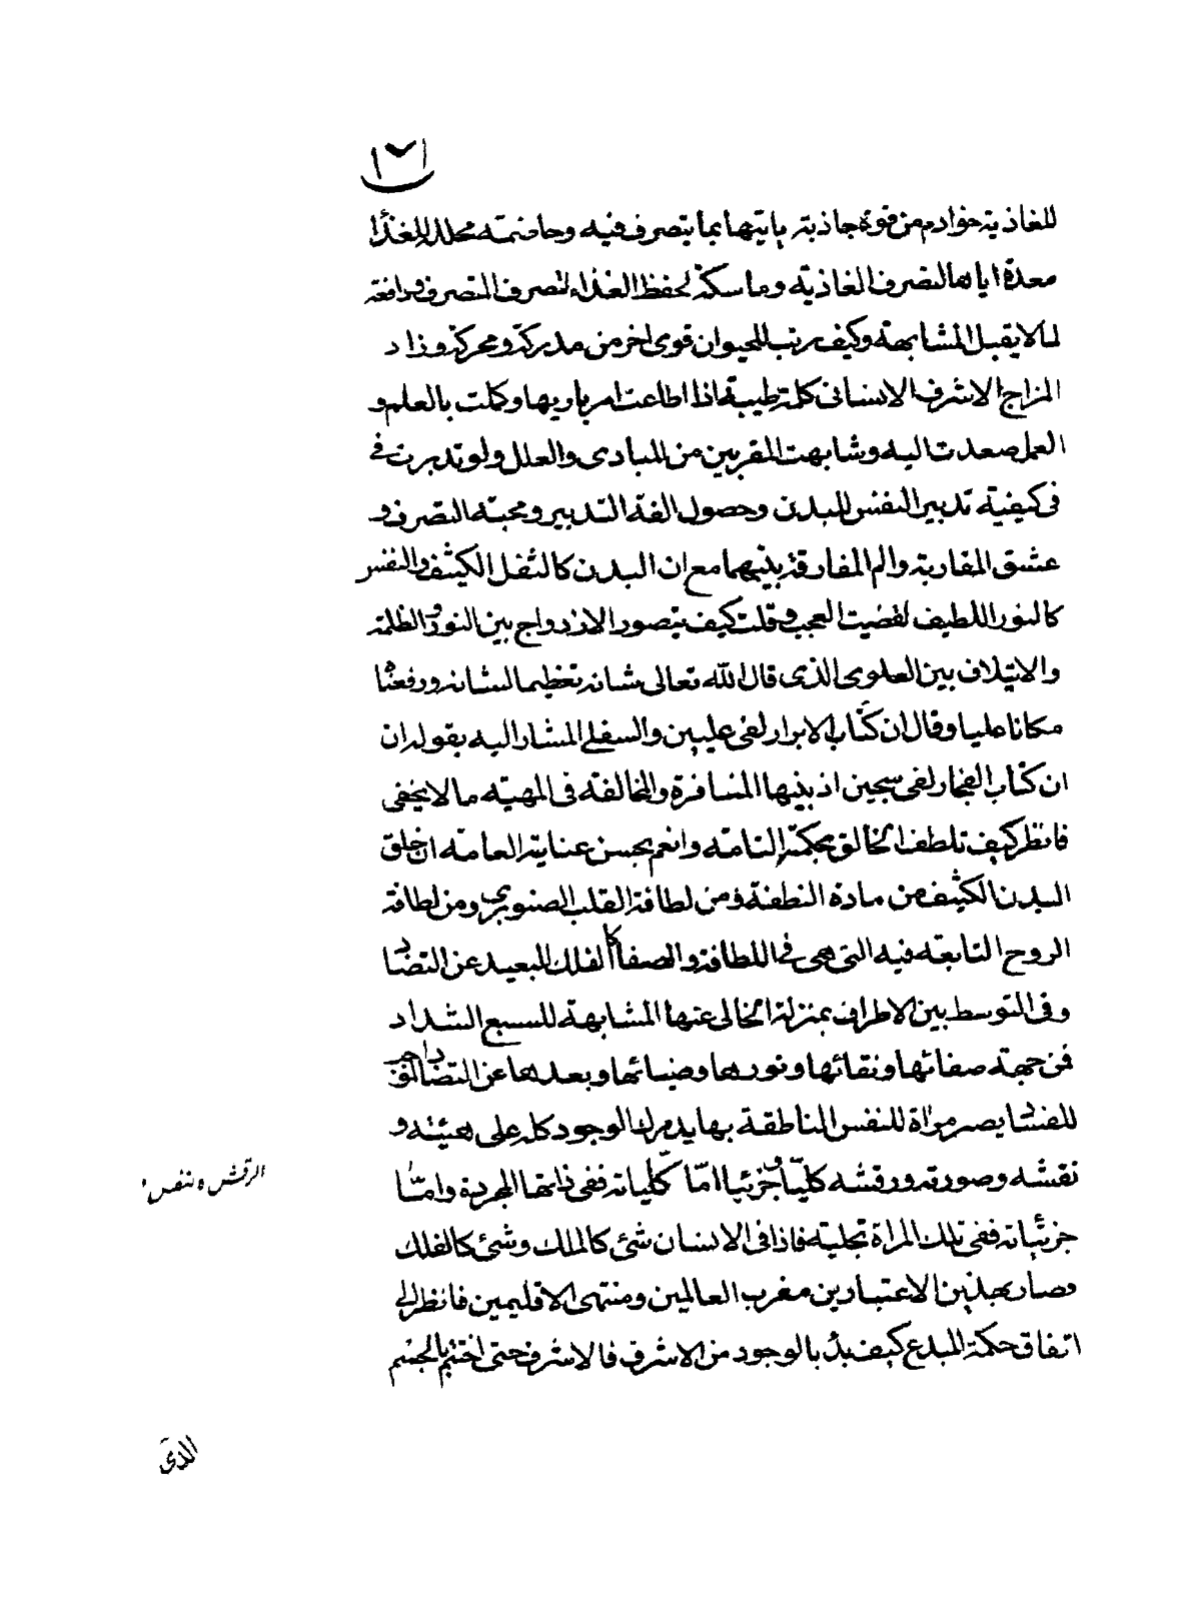 ١٧١
للغاذية خوادم من قوة جاذبة ياتيها بما يتصرف فيه وهاضمة محللة للغذاء
معدة اياها لتصرف الغاذية وماسكة لحفظ الغذاء لتصرف المتصرف ودافعة
لما لا يقبل المشابهة وكيف رتب للحيوان قوى اخر من مدركة ومحركة وزاد
المزاج الاشرف الانسانى كلمة طيبة اذا اطاعت امر باريها وكملت بالعلم و
العمل صعدت اليه وشابهت المقربين من المبادى والعلل ولو تدبرت فى
فى كيفية تدبير النفس للبدن وحصول الفة التدبير ومحبة التصرف و
عشق المقاربة والم المفارقة بينهما مع ان البدن كالثفل الكثيف والنفس
كالنور اللطيف لقضيت العجب وقلت كيف يتصور الازدواج بين النور والظلمة
والايتلاف بين العلوى الذى قال الله تعالى شانه تعظيما لشانه ورفعناه
مكانا عليا وقال ان كتاب الابرار لفى عليين والسفلى المشار اليه بقوله ان
ان كتاب الفجار لفى سجين اذ بينهما المنافرة والمخالفة فى المهية ما لا يخفى
فانظر كيف تلطف الخالق بحكمته التامة وانعم بحسن عنايته العامة ان خلق
البدن الكثيف من مادة النطفة ومن لطافة القلب الصنوبرى ومن لطافة
الروح التابعة فيه التى هى فى اللطافة والصفا كالفلك البعيد عن التضاد
وفى التوسط بين الاطراف بمنزلة الخالى عنها المشابهة للسبع الشداد
فمن جهة صفائها ونقائها ونورها وضيائها وبعدها عن التضاد الموجب
للفساد يصير مراة للنفس الناطقة بها يدرك الوجود كله على هيئته و
نقشه وصورته ورقشه كليا وجزئيا اما كلياته ففى ذاتها المجردة واما
جزئياته ففى تلك المراة تجليه فاذا فى الانسان شئ كالملك وشئ كالفلك
وصار بهذين الاعتبارين مغرب العالمين ومنتهى الاقليمين فانظر الى
اتفاق حكمة المبدع كيف بدأ بالوجود من الاشرف فالاشرف حتى اختتم بالجسم
الرقش
الذى